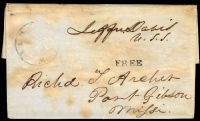 Jeffn Davis
U.S.S.
FREE
Richd T Archer
Port Gibson
Missi.